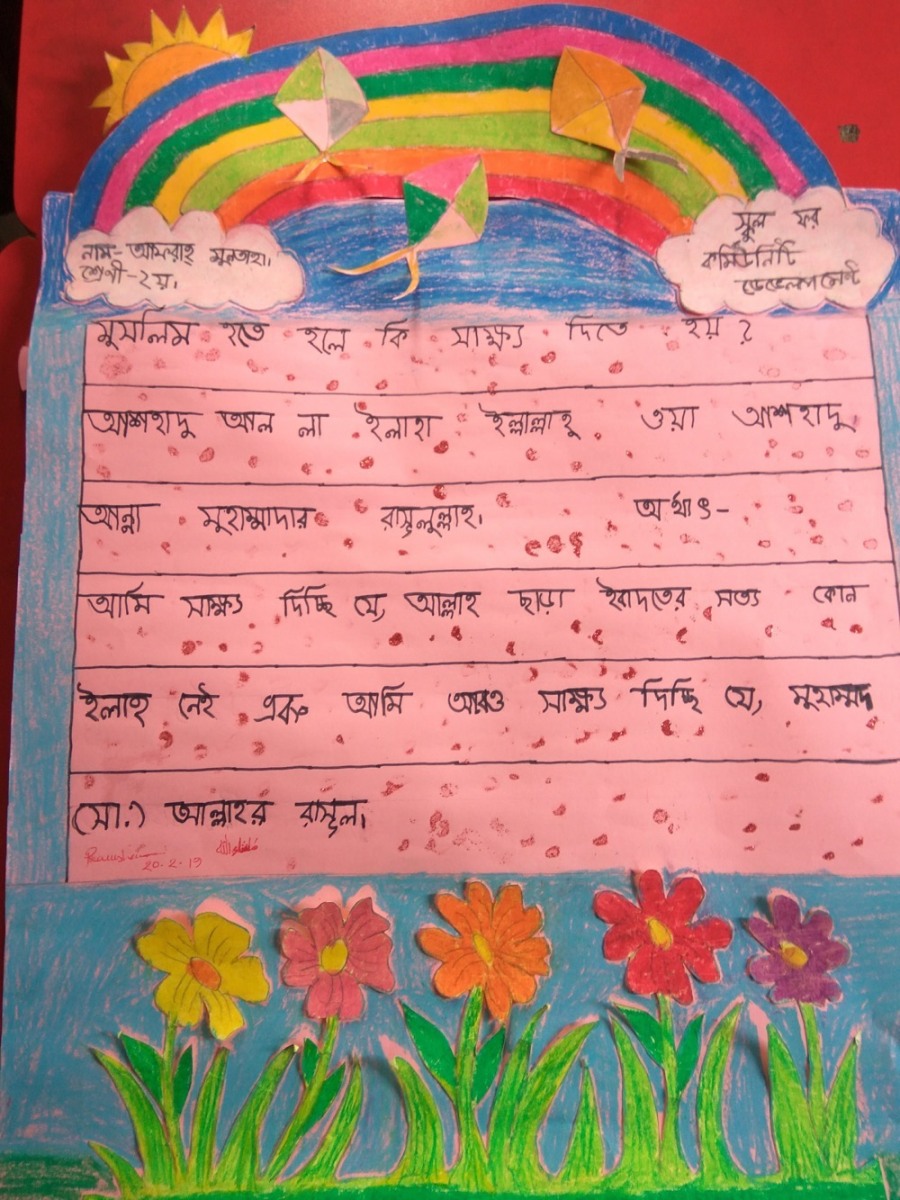 নাম- আমরাহ্ মুনতাহা।
শ্রেণী-২য়।
স্কুল ফর
কমিউনিটি
ডেভেলপমেন্ট
মুসলিম হতে হলে কি সাক্ষ্য দিতে হয় ?
আশহাদু আল লা ইলাহা ইল্লাল্লাহু ওয়া আশহাদু
আন্না মুহাম্মাদার রাসূলুল্লাহ। অর্থাৎ-
আমি সাক্ষ্য দিচ্ছি যে, আল্লাহ ছাড়া ইবাদতের সত্য কোন
ইলাহ নেই এবং আমি আরও সাক্ষ্য দিচ্ছি যে, মুহাম্মদ
(সা:) আল্লাহর রাসূল।
20-2-19